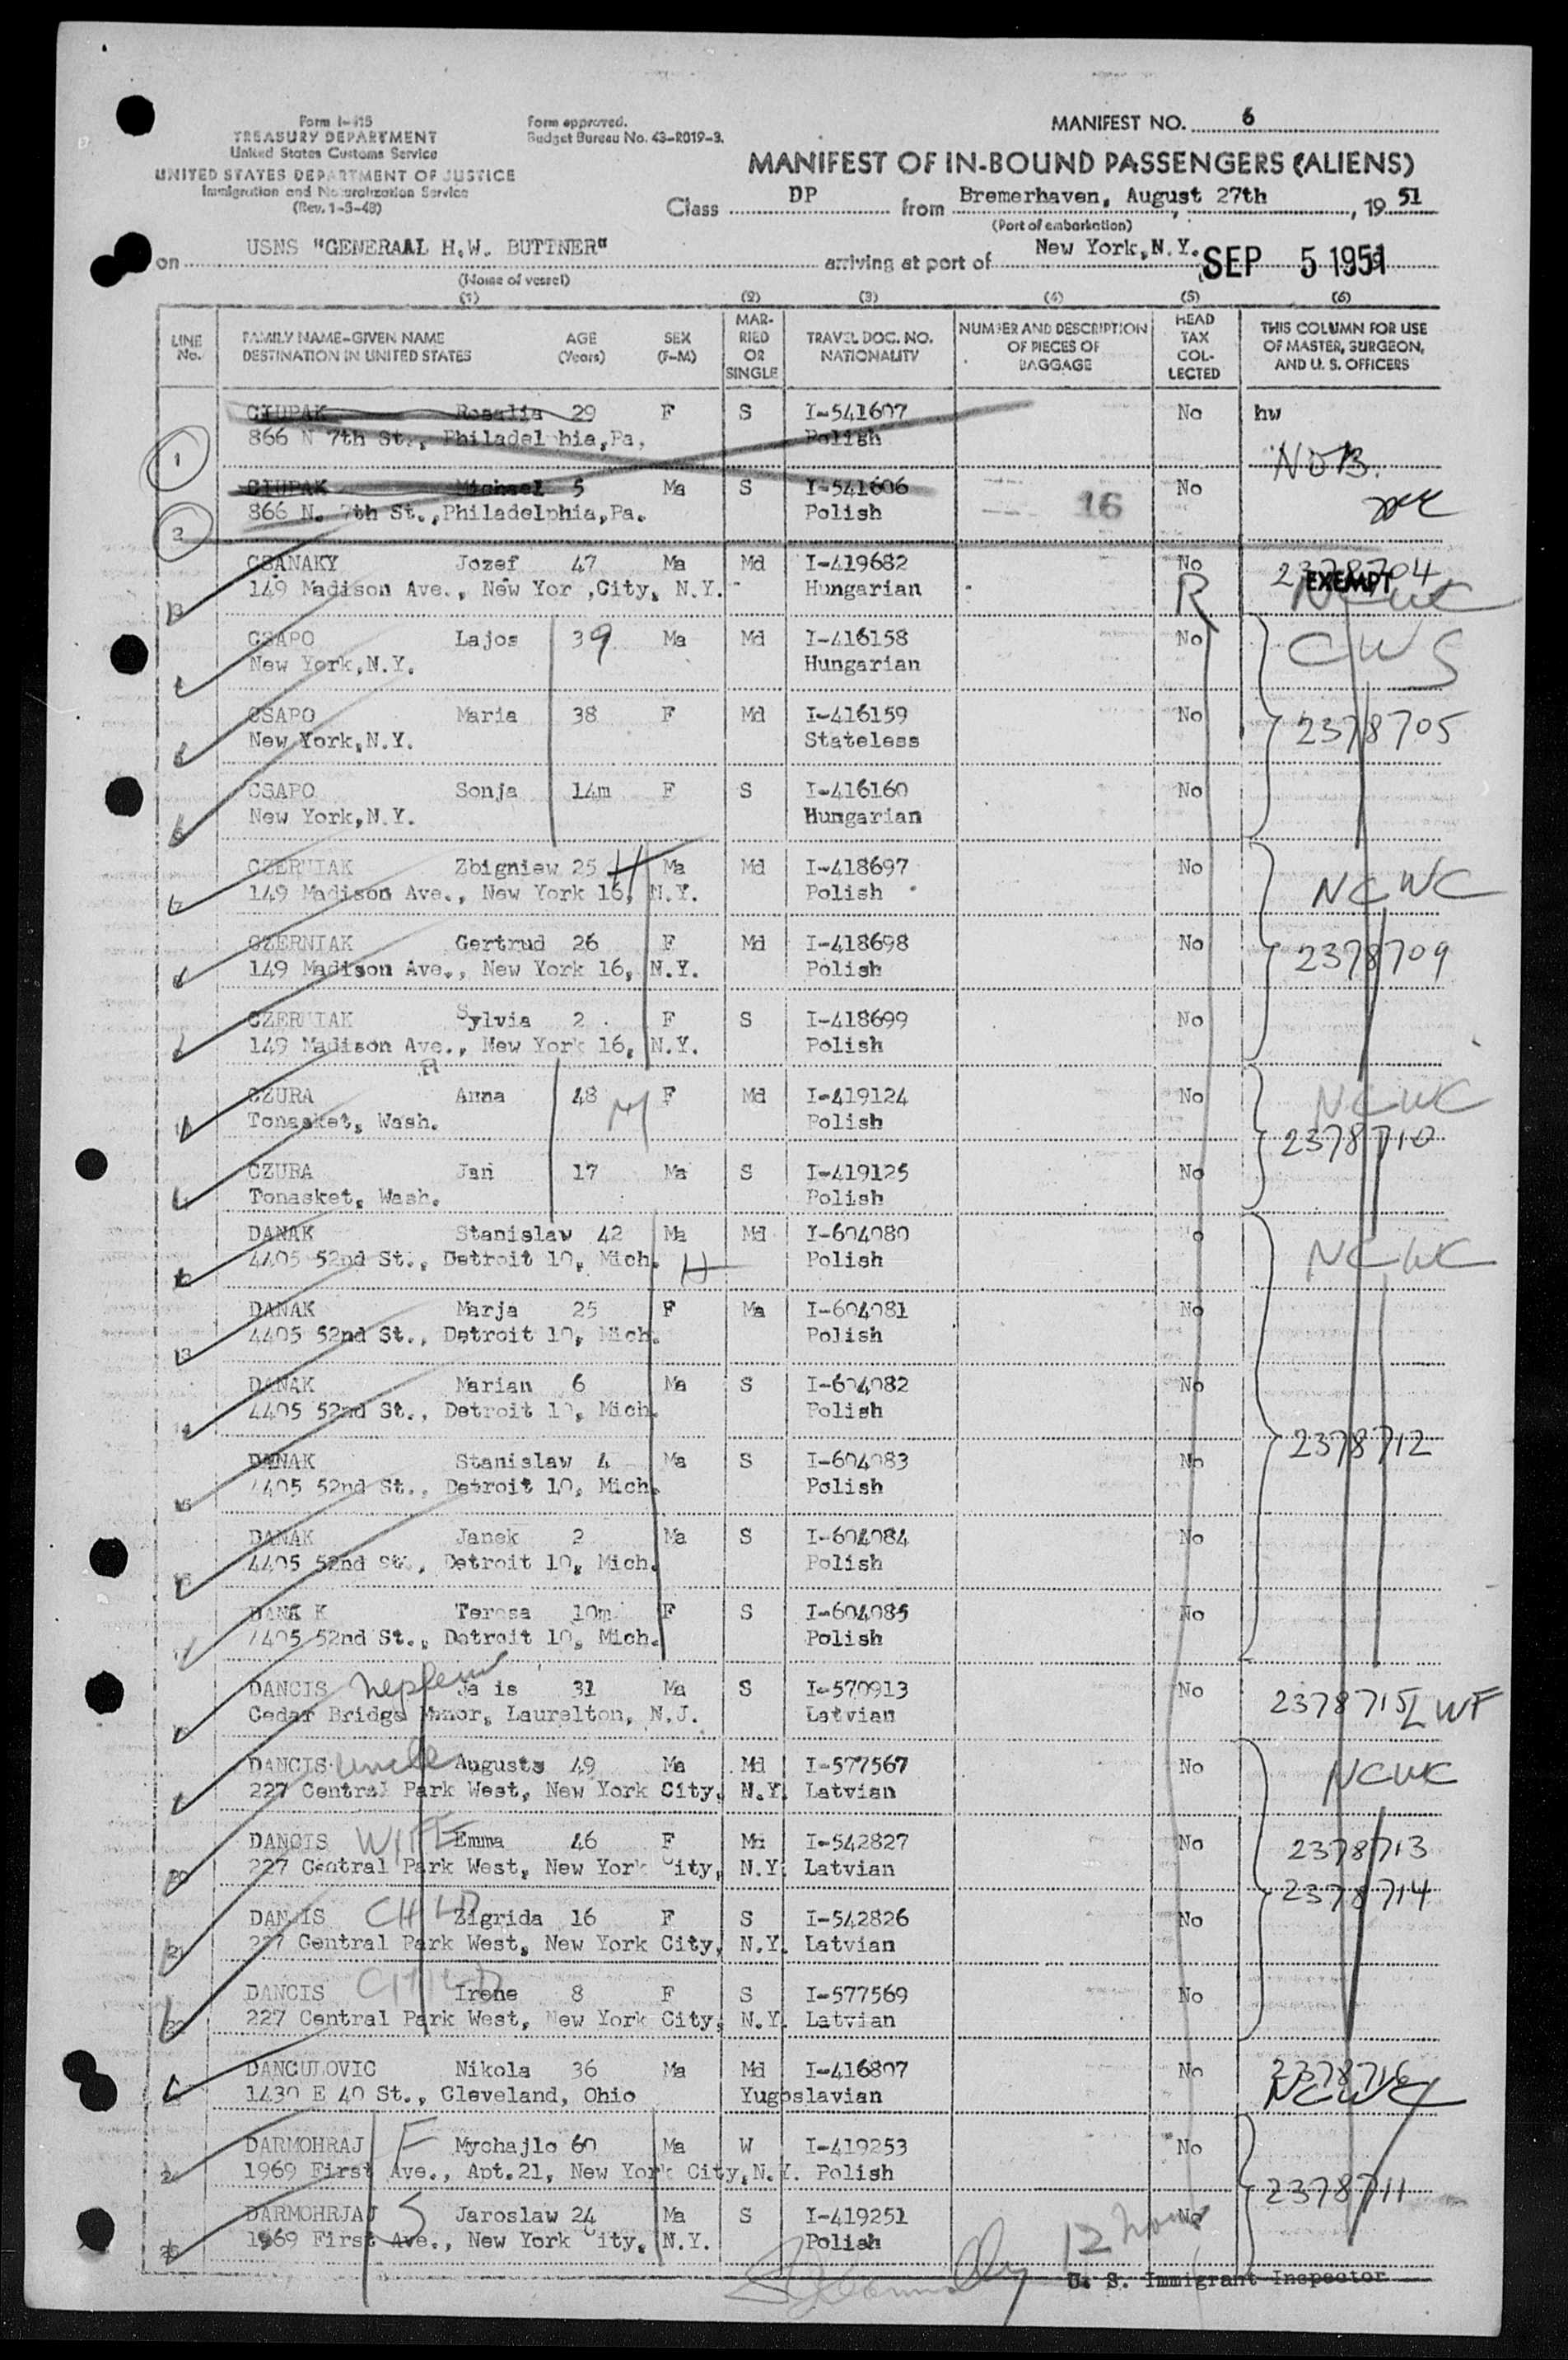 Form I-415
TREASURY DEPARTMENT
United States Customs Service
UNITED STATES DEPARTMENT OF JUSTICE
Immigration and Naturalization Service
(Rev. 1-5-48)
Form approved.
Budget Bureau No. 43-R019-3.
MANIFEST NO. 6
MANIFEST OF IN-BOUND PASSENGERS (ALIENS)
Class DP from Bremerhaven, August 27th, 19 51
(Port of embarkation)
on USNS "GENERAAL H.W. BUTTNER" arriving at port of New York, N.Y. SEP 5 1951
(Name of vessel)
(1) (2) (3) (4) (5) (6)
LINE No.
FAMILY NAME-GIVEN NAME DESTINATION IN UNITED STATES
AGE (Years)
SEX (F-M)
MARRIED OR SINGLE
TRAVEL DOC. NO. NATIONALITY
NUMBER AND DESCRIPTION OF PIECES OF BAGGAGE
HEAD TAX COLLECTED
THIS COLUMN FOR USE OF MASTER, SURGEON, AND U. S. OFFICERS
1 CIUPAK Rosalia 29 F S I-541607 No hw
866 N 7th St., Philadelphia, Pa. Polish
NOB.
2 CIUPAK Michael 5 Ma S I-541606 No
866 N. 7th St., Philadelphia, Pa. Polish 16
3 CSANAKY Jozef 47 Ma Md I-419682 No 2378704
149 Madison Ave., New Yor ,City, N.Y. Hungarian R EXEMPT NCWC
4 CSAPO Lajos 39 Ma Md I-416158 No CWS
New York, N.Y. Hungarian
5 CSAPO Maria 38 F Md I-416159 No 2378705
New York, N.Y. Stateless
6 CSAPO Sonja 14m F S I-416160 No
New York, N.Y. Hungarian
7 CZERNIAK Zbigniew 25 H Ma Md I-418697 No NCWC
149 Madison Ave., New York 16, N.Y. Polish
8 CZERNIAK Gertrud 26 F Md I-418698 No 2378709
149 Madison Ave., New York 16, N.Y. Polish
9 CZERNIAK Sylvia 2 F S I-418699 No
149 Madison Ave., New York 16, N.Y. Polish
10 CZURA Anna 48 M F Md I-419124 No NCWC
Tonasket, Wash. Polish 2378710
11 CZURA Jan 17 Ma S I-419125 No
Tonasket, Wash. Polish
12 DANAK Stanislaw 42 Ma Md I-604080 No NCWC
4405 52nd St., Detroit 10, Mich. H Polish
13 DANAK Marja 25 F Ma I-604081 No
4405 52nd St., Detroit 10, Mich. Polish
14 DANAK Marian 6 Ma S I-604082 No
4405 52nd St., Detroit 10, Mich. Polish
2378712
15 DANAK Stanislaw 4 Ma S I-604083 No
4405 52nd St., Detroit 10, Mich. Polish
16 DANAK Janek 2 Ma S I-604084 No
4405 52nd St., Detroit 10, Mich. Polish
17 DANA K Teresa 10m F S I-604085 No
4405 52nd St., Detroit 10, Mich. Polish
18 DANCIS nephew Ja is 31 Ma S I-570913 No 2378715 LWF
Cedar Bridge Manor, Laurelton, N.J. Latvian
19 DANCIS uncle Augusts 49 Ma Md I-577567 No NCWC
227 Central Park West, New York City, N.Y. Latvian
20 DANCIS WIFE Emma 46 F Md I-542827 No 2378713
227 Central Park West, New York City, N.Y. Latvian 2378714
21 DANCIS CHILD Zigrida 16 F S I-542826 No
227 Central Park West, New York City, N.Y. Latvian
22 DANCIS CHILD Irene 8 F S I-577569 No
227 Central Park West, New York City, N.Y. Latvian
23 DANCULOVIC Nikola 36 Ma Md I-416807 No 2378716
1430 E 40 St., Cleveland, Ohio Yugoslavian NCWC
24 DARMOHRAJ F Mychajlo 60 Ma W I-419253 No
1969 First Ave., Apt.21, New York City, N.Y. Polish 2378711
25 DARMOHRJAJ S Jaroslaw 24 Ma S I-419251 No
1969 First Ave., New York City, N.Y. Polish
12
U. S. Immigrant Inspector